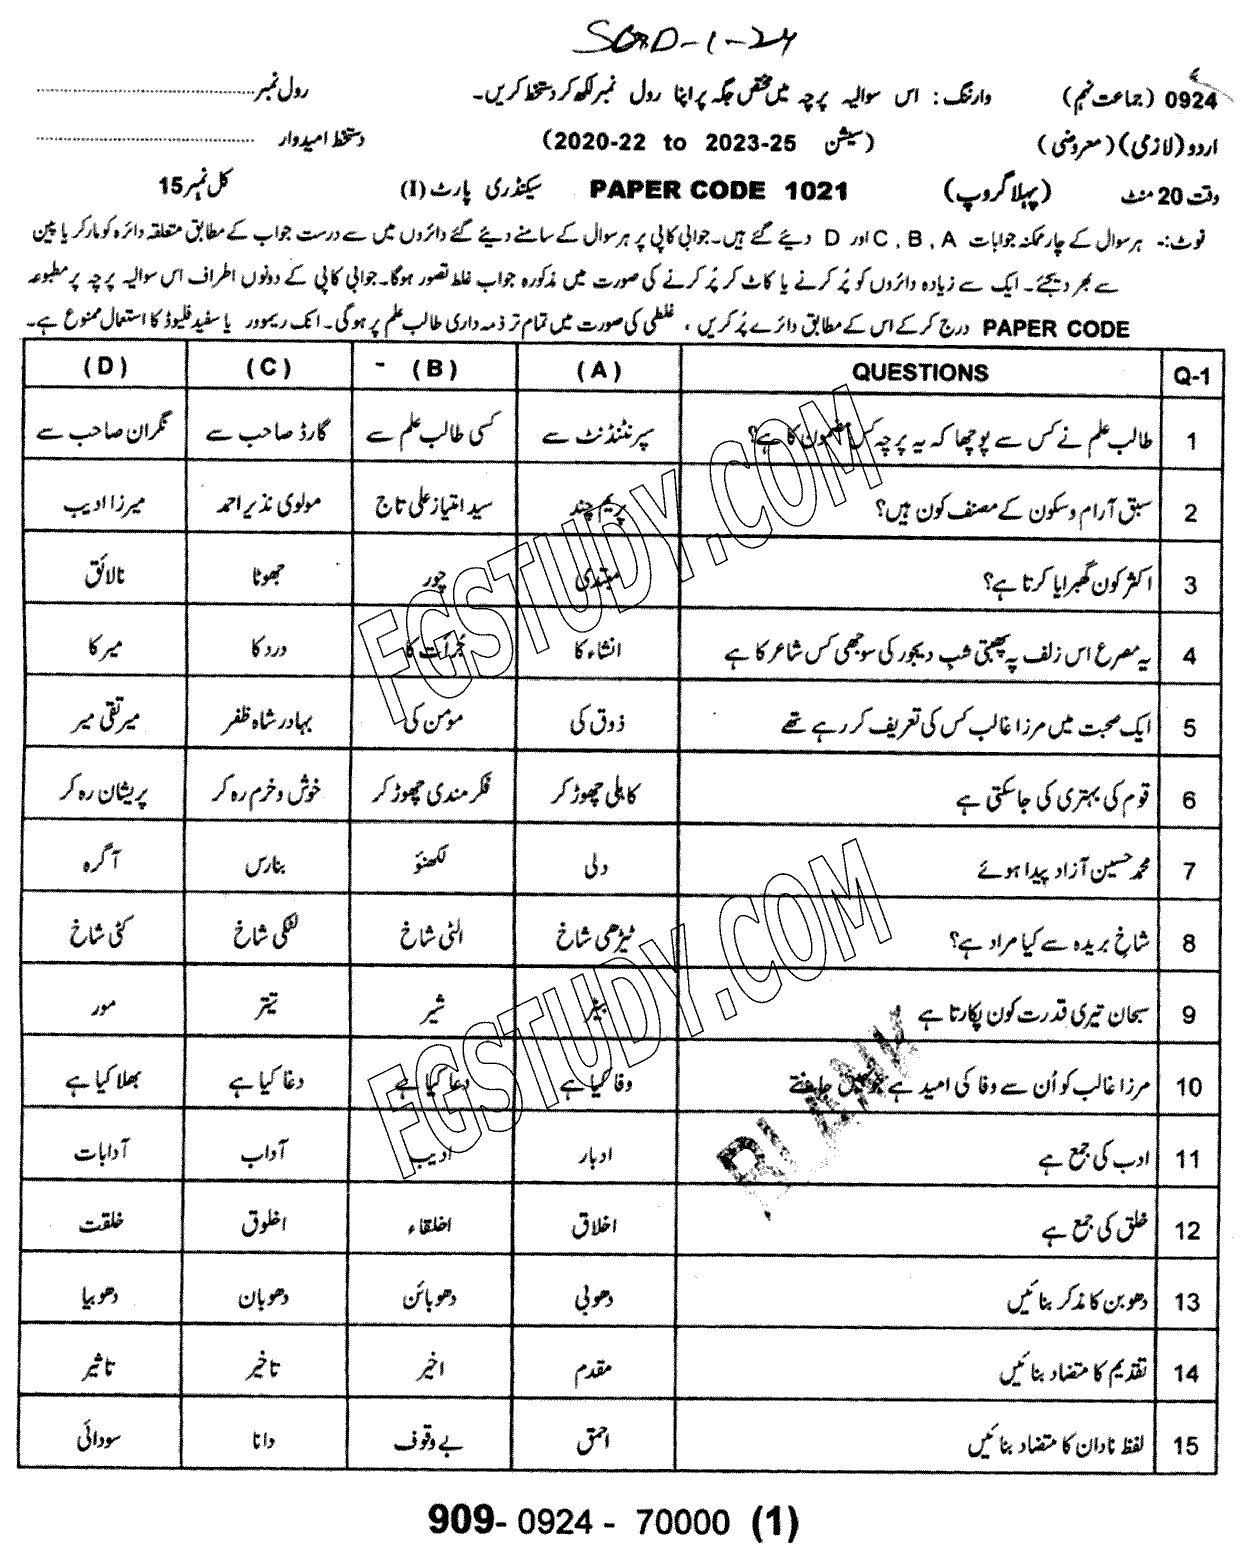 SGD-1-24
0924 (جماعت نہم) وارننگ: اس سوالیہ پرچہ میں مختص جگہ پر اپنا رول نمبر لکھ کر دستخط کریں۔ رول نمبر
اردو (لازمی) (معروضی) (سیشن 2020-22 to 2023-25) دستخط امیدوار
وقت 20 منٹ (پہلا گروپ) PAPER CODE 1021 سیکنڈری پارٹ (I) کل نمبر 15
نوٹ:- ہر سوال کے چار ممکنہ جوابات A , B , C اور D دیئے گئے ہیں۔ جوابی کاپی پر ہر سوال کے سامنے دیئے گئے دائروں میں سے درست جواب کے مطابق متعلقہ دائرہ کو مارکر یا پین
سے بھر دیجئے۔ ایک سے زیادہ دائروں کو پُر کرنے یا کاٹ کر پُر کرنے کی صورت میں مذکورہ جواب غلط تصور ہوگا۔ جوابی کاپی کے دونوں اطراف اس سوالیہ پرچہ پر مطبوعہ
PAPER CODE درج کر کے اس کے مطابق دائرے پُر کریں ، غلطی کی صورت میں تمام تر ذمہ داری طالب علم پر ہوگی۔ انک ریموور یا سفید فلیوڈ کا استعمال ممنوع ہے۔
Q-1 QUESTIONS (A) (B) (C) (D)
1 طالب علم نے کس سے پوچھا کہ یہ پرچہ کس مضمون کا ہے؟ سپرنٹنڈنٹ سے کسی طالب علم سے گارڈ صاحب سے نگران صاحب سے
2 سبق آرام و سکون کے مصنف کون ہیں؟ پریم چند سید امتیاز علی تاج مولوی نذیر احمد میرزا ادیب
3 اکثر کون گھبرایا کرتا ہے؟ مبتدی چور جھوٹا نالائق
4 یہ مصرع اس زلف پہ پھبتی شب دیجور کی سوجھی کس شاعر کا ہے انشاء کا جُرأت کا درد کا میر کا
5 ایک صحبت میں مرزا غالب کس کی تعریف کر رہے تھے ذوق کی مومن کی بہادر شاہ ظفر میر تقی میر
6 قوم کی بہتری کی جا سکتی ہے کاہلی چھوڑ کر فکر مندی چھوڑ کر خوش و خرم رہ کر پریشان رہ کر
7 محمد حسین آزاد پیدا ہوئے دلی لکھنؤ بنارس آگرہ
8 شاخِ بریدہ سے کیا مراد ہے؟ ٹیڑھی شاخ الٹی شاخ لٹکی شاخ کٹی شاخ
9 سبحان تیری قدرت کون پکارتا ہے بٹیر شیر تیتر مور
10 مرزا غالب کو اُن سے وفا کی امید ہے جو نہیں جانتے وفا کیا ہے دعا کیا ہے دغا کیا ہے بھلا کیا ہے
11 ادب کی جمع ہے ادبار ادیب آداب آدابات
12 خلق کی جمع ہے اخلاق اخلقاء اخلوق خلقت
13 دھوبن کا مذکر بنائیں دھوبی دھوبائن دھوبان دھوبیا
14 تقدیم کا متضاد بنائیں مقدم اخیر تاخیر تاثیر
15 لفظ نادان کا متضاد بنائیں احمق بے وقوف دانا سودائی
FGSTUDY.COM
FGSTUDY.COM
BLANK
909- 0924 - 70000 (1)